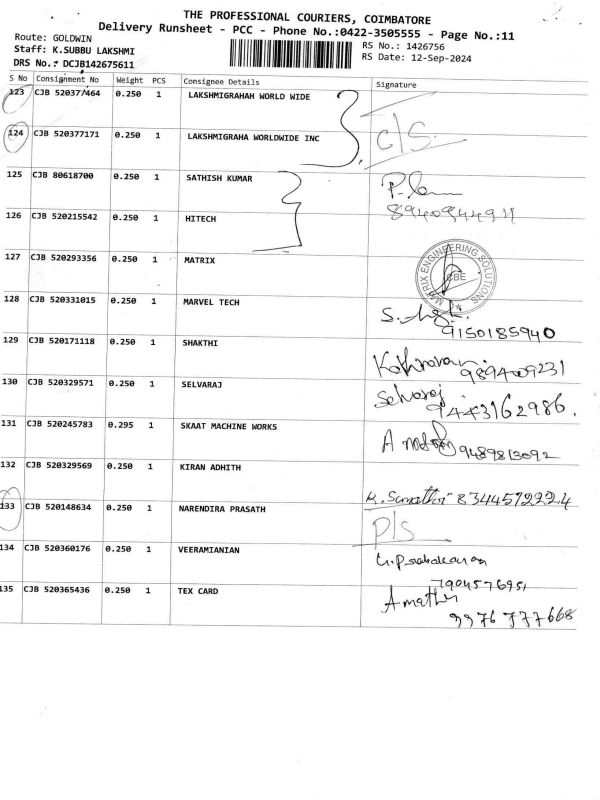 THE PROFESSIONAL COURIERS, COIMBATORE
Delivery Runsheet - PCC - Phone No.:0422-3505555 - Page No.:11
Route: GOLDWIN
RS No.: 1426756
Staff: K.SUBBU LAKSHMI
RS Date: 12-Sep-2024
DRS No.: DCJB142675611
S No Consignment No Weight PCS Consignee Details Signature
123 CJB 520377464 0.250 1 LAKSHMIGRAHAH WORLD WIDE
124 CJB 520377171 0.250 1 LAKSHMIGRAHA WORLDWIDE INC C/S.
125 CJB 80618700 0.250 1 SATHISH KUMAR
126 CJB 520215542 0.250 1 HITECH
127 CJB 520293356 0.250 1 MATRIX
MATRIX ENGINEERING SOLUTIONS
CBE
128 CJB 520331015 0.250 1 MARVEL TECH
9150185940
129 CJB 520171118 0.250 1 SHAKTHI
9894409231
130 CJB 520329571 0.250 1 SELVARAJ Selvaraj
9443162986.
131 CJB 520245783 0.295 1 SKAAT MACHINE WORKS
9489813092
132 CJB 520329569 0.250 1 KIRAN ADHITH
K. Sumathi 8344572224
133 CJB 520148634 0.250 1 NARENDIRA PRASATH P/S
134 CJB 520360176 0.250 1 VEERAMIANIAN
7904576951
135 CJB 520365436 0.250 1 TEX CARD
9976777668